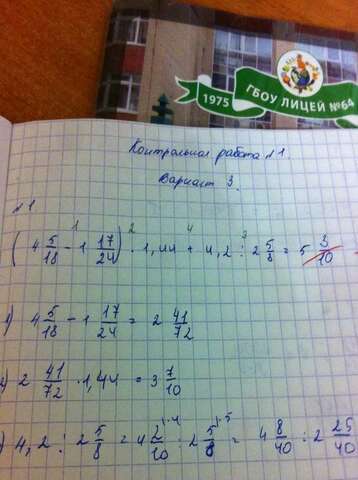 1975 ГБОУ ЛИЦЕЙ №64
Контрольная работа №1.
Вариант 3.
№1
(4 5/18 - 1 17/24) · 1,44 + 4,2 : 2 5/8 = 5 3/10
1 2 4 3
1) 4 5/18 - 1 17/24 = 2 41/72
2) 2 41/72 · 1,44 = 3 7/10
) 4,2 : 2 5/8 = 4 2/10 : 2 5/8 = 4 8/40 : 2 25/40